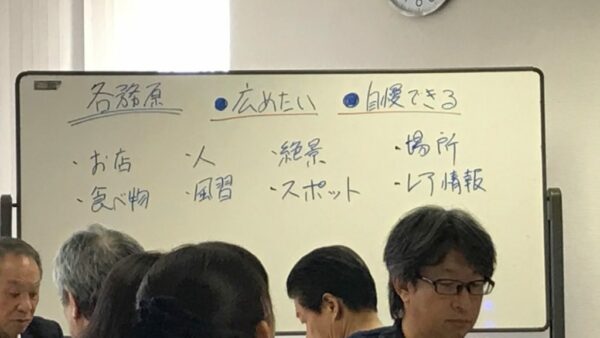 各務原 ●広めたい ●自慢できる
・お店 ・人 ・絶景 ・場所
・食べ物 ・風習 ・スポット ・レア情報